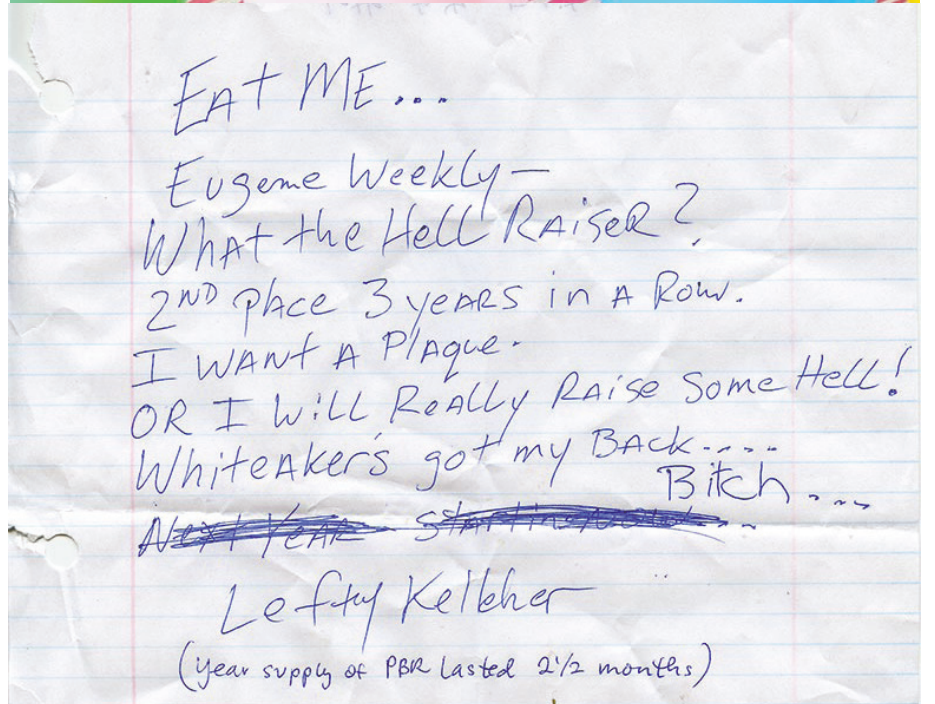 EAt ME...
Eugene Weekly—
What the Hell RAiSeR?
2ND place 3 yeARS in A Row.
I WANt A PlAque.
OR I WiLL ReALLy RAise Some HeLL!
WhiteAker's got my BAck....
Bitch....
Next YeAR
Lefty Kelleher
(year supply of PBR lasted 2 1/2 months)